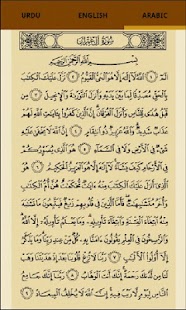 URDU ENGLISH ARABIC
سُورَةُ آلِ عِمْرَانَ
بِسْمِ اللَّهِ الرَّحْمَٰنِ الرَّحِيمِ
الٓمٓ ١ اللَّهُ لَا إِلَٰهَ إِلَّا هُوَ الْحَيُّ الْقَيُّومُ ٢ نَزَّلَ عَلَيْكَ الْكِتَٰبَ
بِالْحَقِّ مُصَدِّقًا لِّمَا بَيْنَ يَدَيْهِ وَأَنزَلَ التَّوْرَىٰةَ وَالْإِنجِيلَ ٣ مِن
قَبْلُ هُدًى لِّلنَّاسِ وَأَنزَلَ الْفُرْقَانَ إِنَّ الَّذِينَ كَفَرُوا بِـَٔايَٰتِ اللَّهِ لَهُمْ
عَذَابٌ شَدِيدٌ وَاللَّهُ عَزِيزٌ ذُو انتِقَامٍ ٤ إِنَّ اللَّهَ لَا يَخْفَىٰ عَلَيْهِ شَيْءٌ
فِي الْأَرْضِ وَلَا فِي السَّمَاءِ ٥ هُوَ الَّذِي يُصَوِّرُكُمْ
فِي الْأَرْحَامِ كَيْفَ يَشَاءُ لَا إِلَٰهَ إِلَّا هُوَ الْعَزِيزُ الْحَكِيمُ ٦ هُوَ الَّذِي
أَنزَلَ عَلَيْكَ الْكِتَٰبَ مِنْهُ ءَايَٰتٌ مُّحْكَمَٰتٌ هُنَّ أُمُّ الْكِتَٰبِ
وَأُخَرُ مُتَشَٰبِهَٰتٌ فَأَمَّا الَّذِينَ فِي قُلُوبِهِمْ زَيْغٌ فَيَتَّبِعُونَ مَا تَشَٰبَهَ مِنْهُ
ابْتِغَاءَ الْفِتْنَةِ وَابْتِغَاءَ تَأْوِيلِهِ وَمَا يَعْلَمُ تَأْوِيلَهُ إِلَّا اللَّهُ
وَالرَّٰسِخُونَ فِي الْعِلْمِ يَقُولُونَ ءَامَنَّا بِهِ كُلٌّ مِّنْ عِندِ رَبِّنَا وَمَا يَذَّكَّرُ إِلَّا
أُولُوا الْأَلْبَٰبِ ٧ رَبَّنَا لَا تُزِغْ قُلُوبَنَا بَعْدَ إِذْ هَدَيْتَنَا وَهَبْ
لَنَا مِن لَّدُنكَ رَحْمَةً إِنَّكَ أَنتَ الْوَهَّابُ ٨ رَبَّنَا إِنَّكَ جَامِعُ
النَّاسِ لِيَوْمٍ لَّا رَيْبَ فِيهِ إِنَّ اللَّهَ لَا يُخْلِفُ الْمِيعَادَ ٩